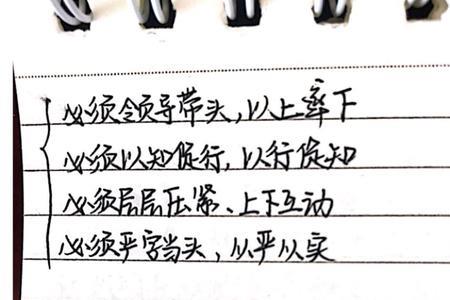 必须领导带头,以上率下
必须以知促行,以行促知
必须层层压紧、上下互动
必须严字当头,从严从实